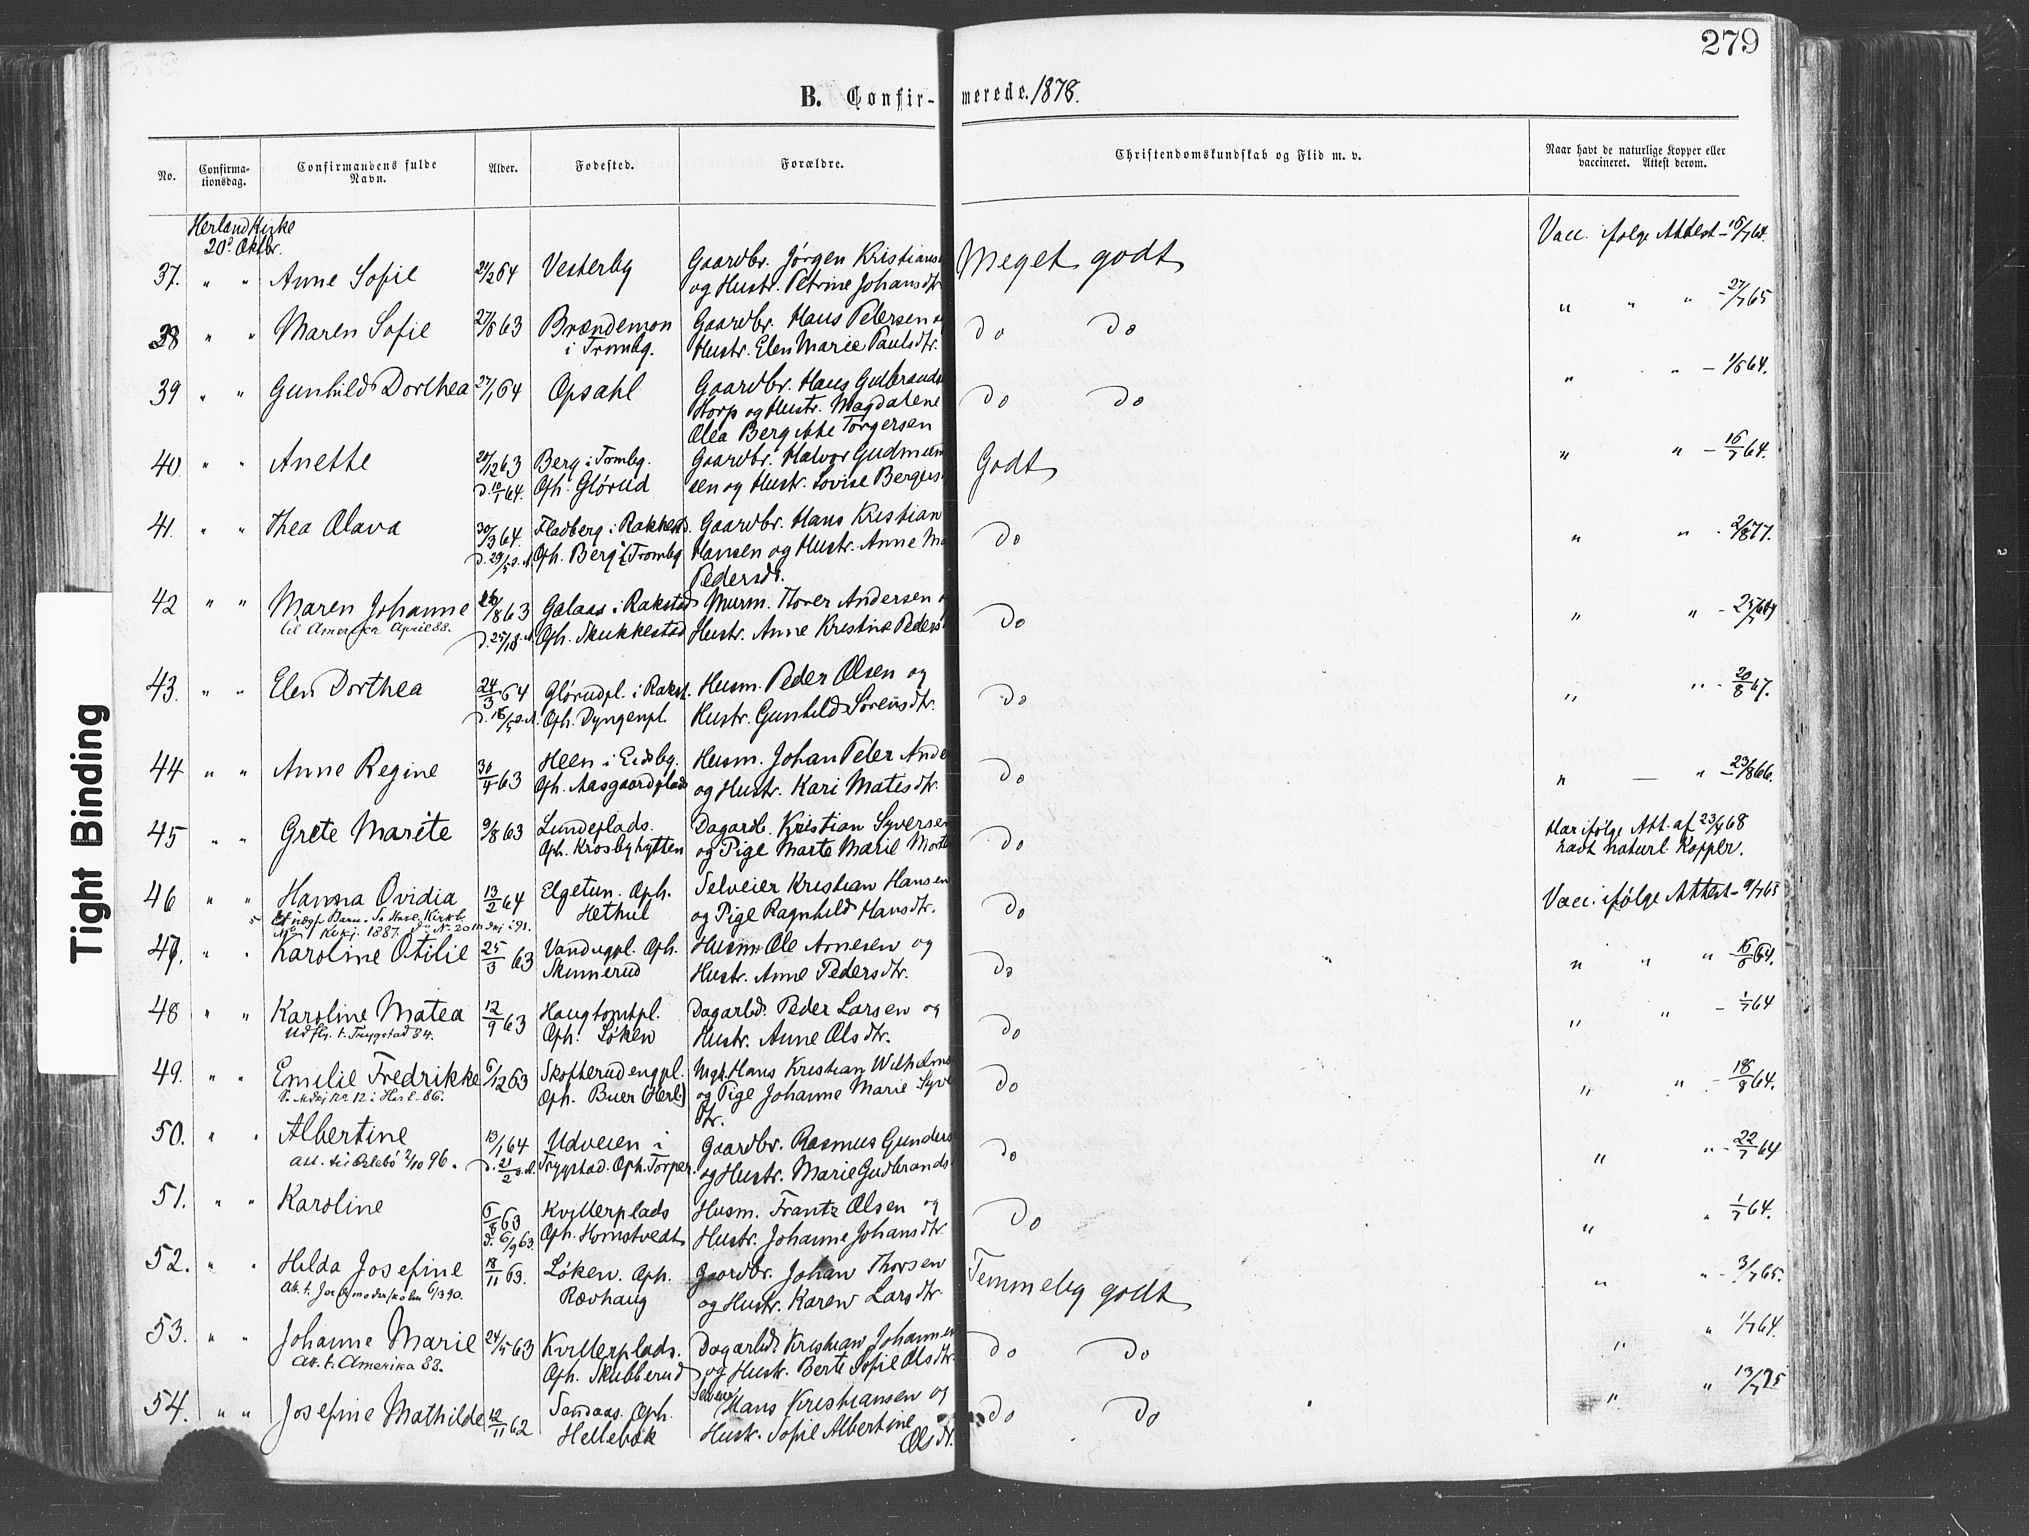 279
B. Confir-merede. 1878.
No. Confirma-tionsdag. Confirmandens fulde Navn. Alder. Fødested. Forældre. Christendomskundskab og Flid m. v. Naar havt de naturlige Kopper eller vaccineret. Attest derom.
Herland Kirke
20de Oktbr.
37. " " Anne Sofie 21/2 64 Vesterby Gaardbr. Jørgen Kristians Meget godt Vacc. ifølge Attest - 15/7 64.
og Hustr. Petrine Johansdtr.
38 " " Maren Sofie 27/5 63 Brændemon Gaardbr. Hans Petersen og do do " " " - 27/7 65
i Trømbg. Hustr. Elen Marie Paulsdtr.
39 " " Gunhild Dorthea 27/1 64 Opsahl Gaardbr. Hans Gulbrands do do " " - 1/6 64.
Torp og Hustr. Magdalene
Olea Berg Torgersen
40 " " Anette 20/12 63 Berg i Trømbg. Gaardbr. Halvor Gudmund Godt " " - 16/7 64.
d. 10/1 64. Oph. Glørud sen og Hustr. Lovise Berger
41. " " Thea Olava 30/3 64. Fladberg i Rakkest. Gaardbr. Hans Kristian do " " - 2/8 77.
d. 29/5 s. A. Oph. Berg i Trømbg Hansen og Hustr. Anne Ma
Pedersdt.
42 " " Maren Johanne 16/8 63 Galaas i Rakstad Murm. Thover Andersen do " " - 25/7 64
til Amerika April 88. d. 25/10 s. A. Oph. Skukkestad Hustr. Anne Kristine Peders
43. " " Elen Dorthea 24/3 64 Glørudpl. i Rakst. Husm. Peder Olsen og do " " - 20/8 67.
d. 16/5 s. A. Oph. Dyngenpl. Hustr. Gunhild Sørensdtr.
44 " " Anne Regine 30/4 63 Heen i Eidsbg. Husm. Johan Peter Ander do " — " - 23/8 66.
Oph. Aasgaardplads og Hustr. Kari Matesdtr.
45 " " Grete Marite 9/8 63 Lundeplads. Dagarb. Kristian Syversen do Har ifølge Att. af 23/4 68
Oph. Krosbyhytten og Pige Marte Marie Morte havt naturl. Kopper.
46 " " Hanna Ovidia 13/2 64 Elgetun. Oph. Selveier Kristian Hansen do Vacc. ifølge Attest - 9/7 65
Hethul og Pige Ragnhild Hansdtr.
47. " " Karoline Otilie 25/3 63 Vandugpl. Oph. Husm Ole Arnesen og do " " " - 16/6 64.
Skinnerud Hustr. Anne Pedersdtr.
48 " " Karoline Matea 12/9 63 Haugtomtpl. Dagarbd. Peder Larsen og do " " - 1/7 64
Udfly. t. Trygstad 84. Oph. Løken Hustr. Anne Olsdtr.
49. " " Emilie Fredrikke 6/12 63 Skofterudengpl. Ungk. Hans Kristian Wilhelms do " " - 18/8 64.
No 12 i Herl. 86. Oph. Buer (Herl.) og Pige Johanne Marie Syve
dtr.
50. " " Albertine 13/1 64 Udveien i Gaardbr. Rasmus Gunders do " " - 22/7 64
Att. til Ørlebø 2/10 96. d. 21/2 s. A. Trygstad. Oph. Torper. og Hustr. Marie Gudbrands
51. " " Karoline 6/8 63 Kvitterplads Husm. Frantz Olsen og do " " 1/7 64.
d. 6/9 63. Oph. Homstvedt Hustr. Johanne Johansdtr
52. " " Hilda Josefine 18/11 63. Løken. Oph. Gaardbr. Johan Thorsen Temmelig godt " " - 3/7 65.
Att. t. Jordemoderskolen 6/3 90. Rævhaug og Hustr. Karen Larsdtr.
53. " " Johanne Marie 24/5 63 Kvitterplads. Dagarbd. Kristian Johannes do do " " 1/7 64.
Att. t. Amerika 83. Oph. Skubberud og Hustr. Berte Sofie Olsdtr.
54. " " Josefine Mathilde 12/11 62 Sandaas. Oph. Selveier Hans Kristiansen og do do " " 13/7 75
Hellebæk Hustr. Sofie Albertine
Olsdt.
Tight Binding